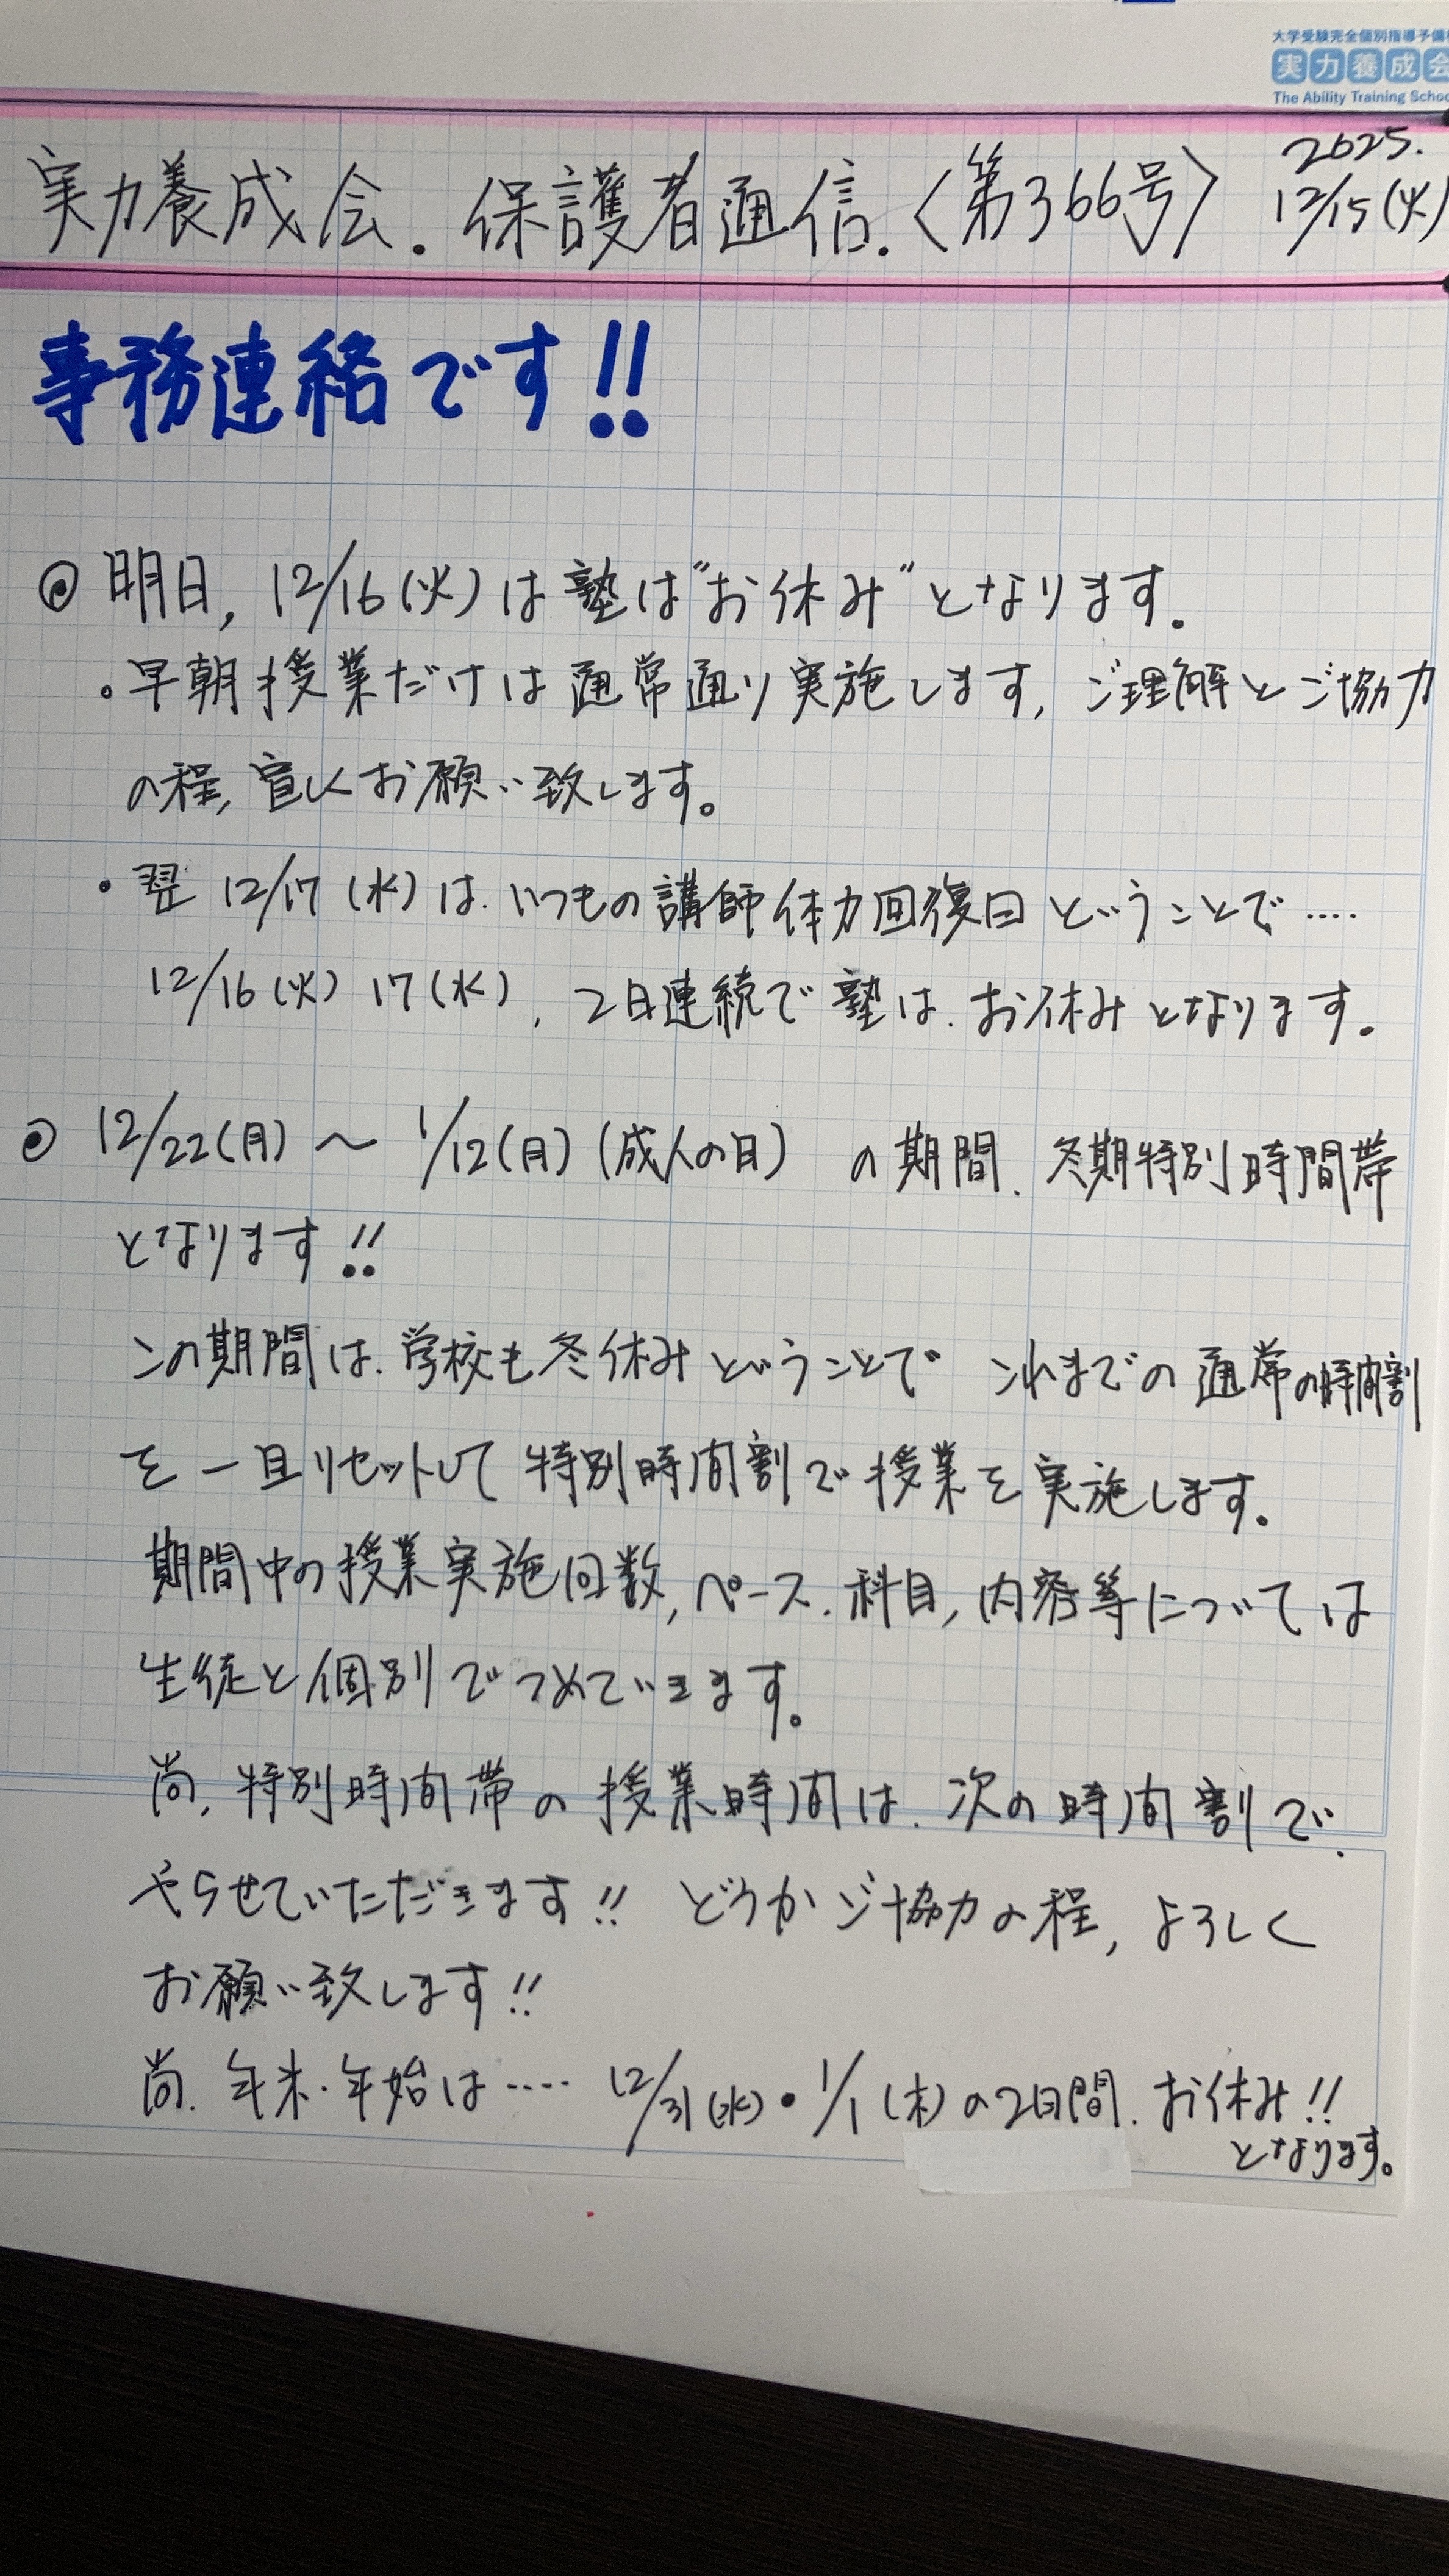 大学受験完全個別指導予備
実力養成会
The Ability Training Schoo
実力養成会.保護者通信.〈第366号〉
2025.
12/15(火)
事務連絡です!!
◎ 明日, 12/16(火)は塾は"お休み"となります。
・早朝授業だけは通常通り実施します, ご理解とご協力
の程, 宜しくお願い致します。
・翌 12/17 (水)は.いつもの講師体力回復日ということで‥‥
12/16(火) 17(水), 2日連続で塾は.お休みとなります。
◎ 12/22(月)〜 1/12(月)(成人の日) の期間.冬期特別時間帯
となります!!
この期間は.学校も冬休みということで これまでの通常の時間割
を一旦リセットして特別時間割で授業を実施します。
期間中の授業実施回数, ペース.科目, 内容等については
生徒と個別でつめていきます。
尚, 特別時間帯の授業時間は.次の時間割で.
やらせていただきます!! どうかご協力の程, よろしく
お願い致します!!
尚.年末・年始は‥‥ 12/31(水)・1/1(木)の2日間.お休み!!
となります。